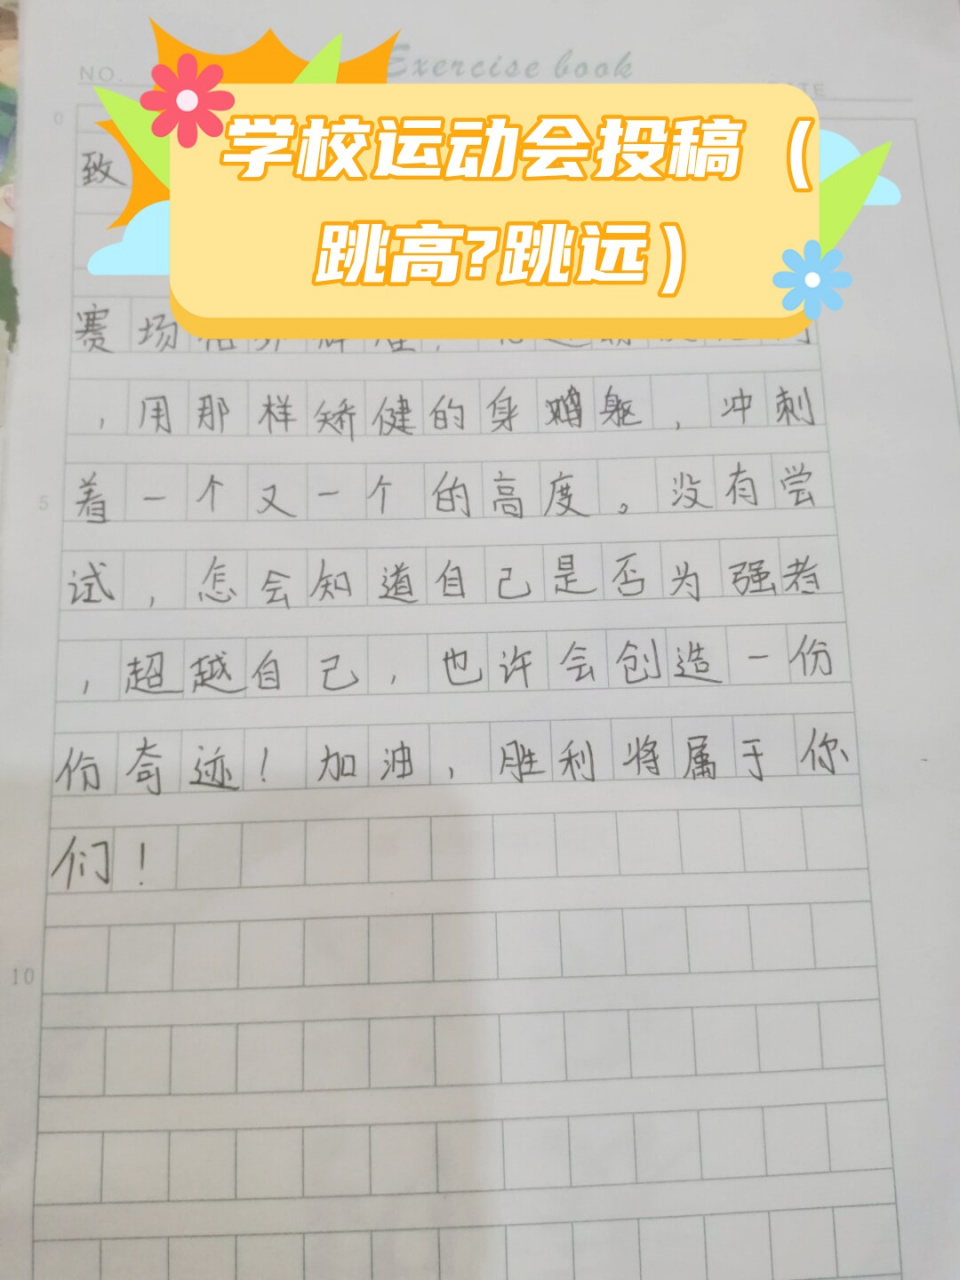 Exercise book
NO.
学校运动会投稿（
跳高?跳远）
0
致
赛场
，用那样矫健的身躯，冲刺
5
着一个又一个的高度。没有尝
试，怎会知道自己是否为强者
，超越自己，也许会创造一份
份奇迹！加油，胜利将属于你
们！
10